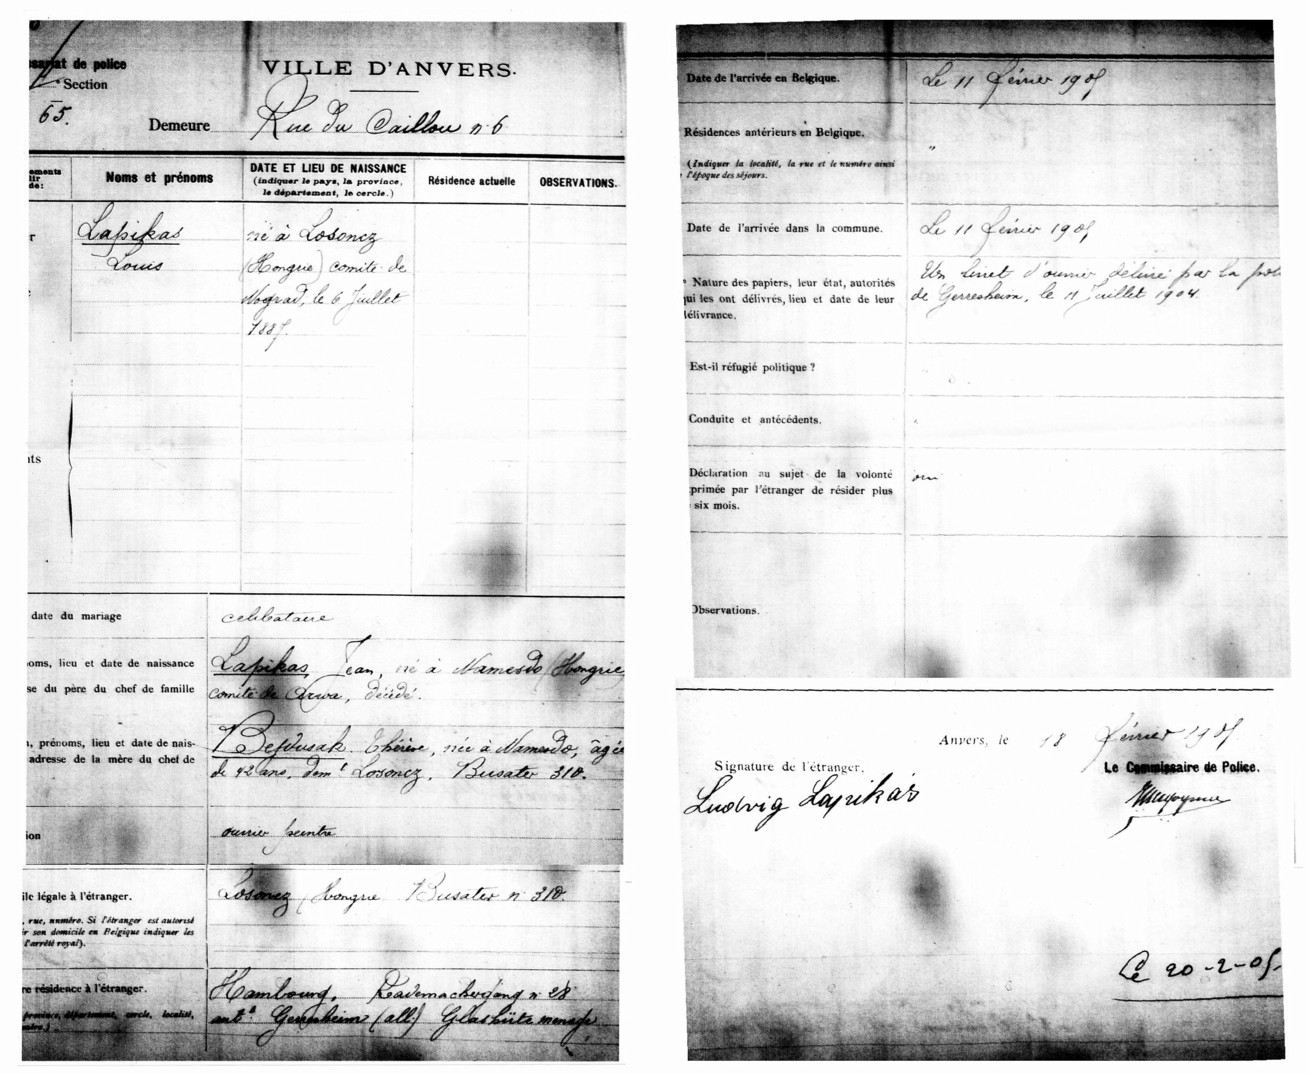 de police
Section
65.
VILLE D'ANVERS.
Demeure Rue du Caillou n. 6
Noms et prénoms
DATE ET LIEU DE NAISSANCE
(indiquer le pays, la province,
le département, le cercle.)
Résidence actuelle
OBSERVATIONS.
Lapikas
Louis
né à Losoncz
(Hongrie) comité de
Nograd, le 6 Juillet
1887.
date du mariage
celibataire
lieu et date de naissance
du père du chef de famille
Lapikas, Jean, né à Namesdo (Hongrie
comité de Arwa, décédé.
prénoms, lieu et date de nais-
adresse de la mère du chef de
Thérèse, née à Namesdo, âgée
de 42 ans, demt Losoncz, Busater 310.
ouvrier peintre
légale à l'étranger.
rue, numéro. Si l'étranger est autorisé
son domicile en Belgique indiquer les
l'arrêté royal).
Losoncz Hongrie Busater n. 310.
résidence à l'étranger.
province, département, cercle, localité,
Hambourg, Rademachergang n. 28
Gerresheim (all.) Glashütte
Date de l'arrivée en Belgique.
Le 11 février 1905
Résidences antérieurs en Belgique.
"
(Indiquer la localité, la rue et le numéro ainsi
l'époque des séjours.
Date de l'arrivée dans la commune.
Le 11 février 1905
Nature des papiers, leur état, autorités
qui les ont délivrés, lieu et date de leur
délivrance.
Un livret d'ouvrier délivré par la
de Gerresheim, le 11 Juillet 1904.
Est-il réfugié politique ?
Conduite et antécédents.
Déclaration au sujet de la volonté
primée par l'étranger de résider plus
six mois.
oui
Observations.
Anvers, le 18 février 1905
Signature de l'étranger,
Le Commissaire de Police.
Ludvig Lapikás
Le 20-2-05.